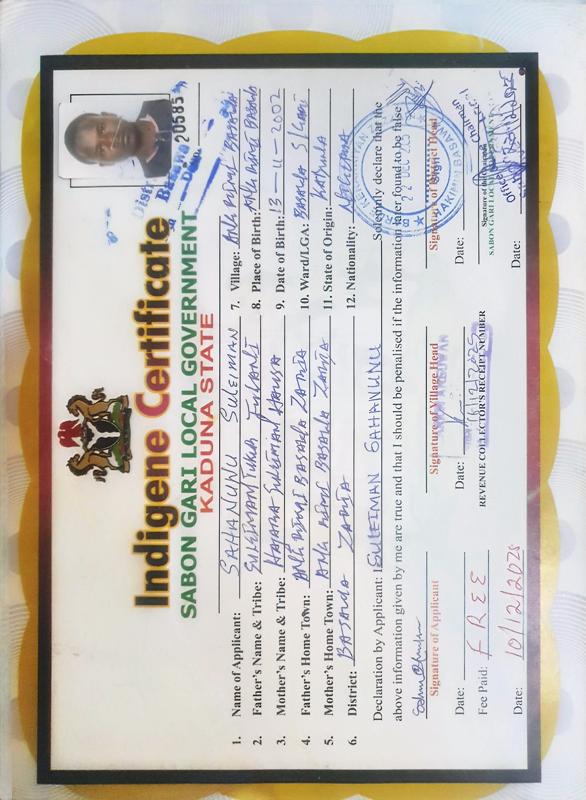 Indigene Certificate
SABON GARI LOCAL GOVERNMENT
KADUNA STATE
20585
1. Name of Applicant: SAHANUNU SULEIMAN
2. Father's Name & Tribe: SULEIMAN TUKUR FULANI
3. Mother's Name & Tribe: HAJARA SULEIMAN HAUSA
4. Father's Home Town: BASAWA ZARIA
5. Mother's Home Town: BASAWA ZARIA
6. District: BASAWA ZARIA
7. Village: BASAWA
8. Place of Birth: BASAWA
9. Date of Birth: 13-11-2002
10. Ward/LGA: BASAWA S/GARI
11. State of Origin: KADUNA
12. Nationality: NIGERIAN
Declaration by Applicant: I SULEIMAN SAHANUNU Solemnly declare that the
above information given by me are true and that I should be penalised if the information later found to be false
Signature of Applicant
Signature of Village Head
Signature of District Head
Date:
Date: 16/12/2025
Date:
Fee Paid: FREE
REVENUE COLLECTOR'S RECEIPT NUMBER
SABON GARI LOCAL GOVERNMENT
Date: 10/12/2025
Date: